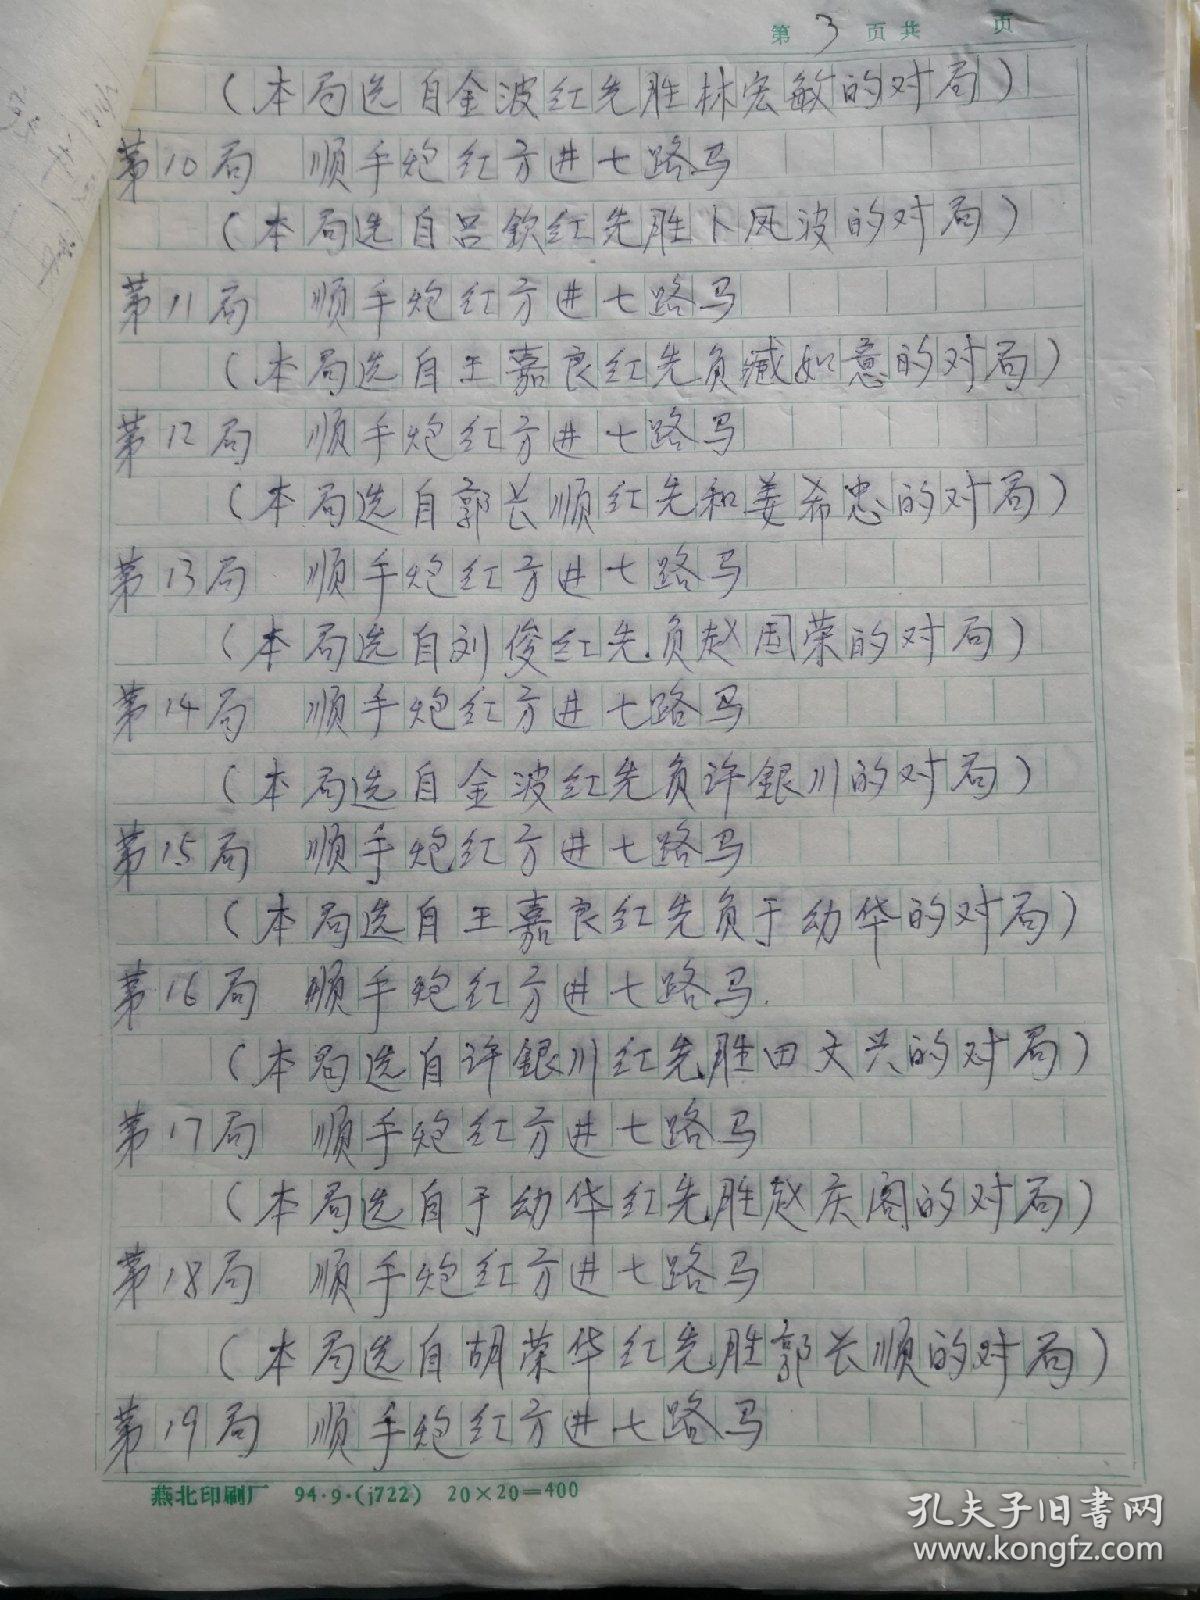 第3页共 页
(本局选自金波红先胜林宏敏的对局)
第10局 顺手炮红方进七路马
(本局选自吕钦红先胜卜凤波的对局)
第11局 顺手炮红方进七路马
(本局选自王嘉良红先负臧如意的对局)
第12局 顺手炮红方进七路马
(本局选自郭长顺红先和姜希忠的对局)
第13局 顺手炮红方进七路马
(本局选自刘俊红先负赵国荣的对局)
第14局 顺手炮红方进七路马
(本局选自金波红先负许銀川的对局)
第15局 顺手炮红方进七路马
(本局选自王嘉良红先负于幼华的对局)
第16局 顺手炮红方进七路马.
(本局选自许銀川红先胜田文兴的对局)
第17局 顺手炮红方进七路马
(本局选自于幼华红先胜赵庆阁的对局)
第18局 顺手炮红方进七路马
(本局选自胡荣华红先胜郭长顺的对局)
第19局 顺手炮红方进七路马
燕北印刷厂 94·9·(j722) 20×20=400
孔夫子旧书网
www.kongfz.com